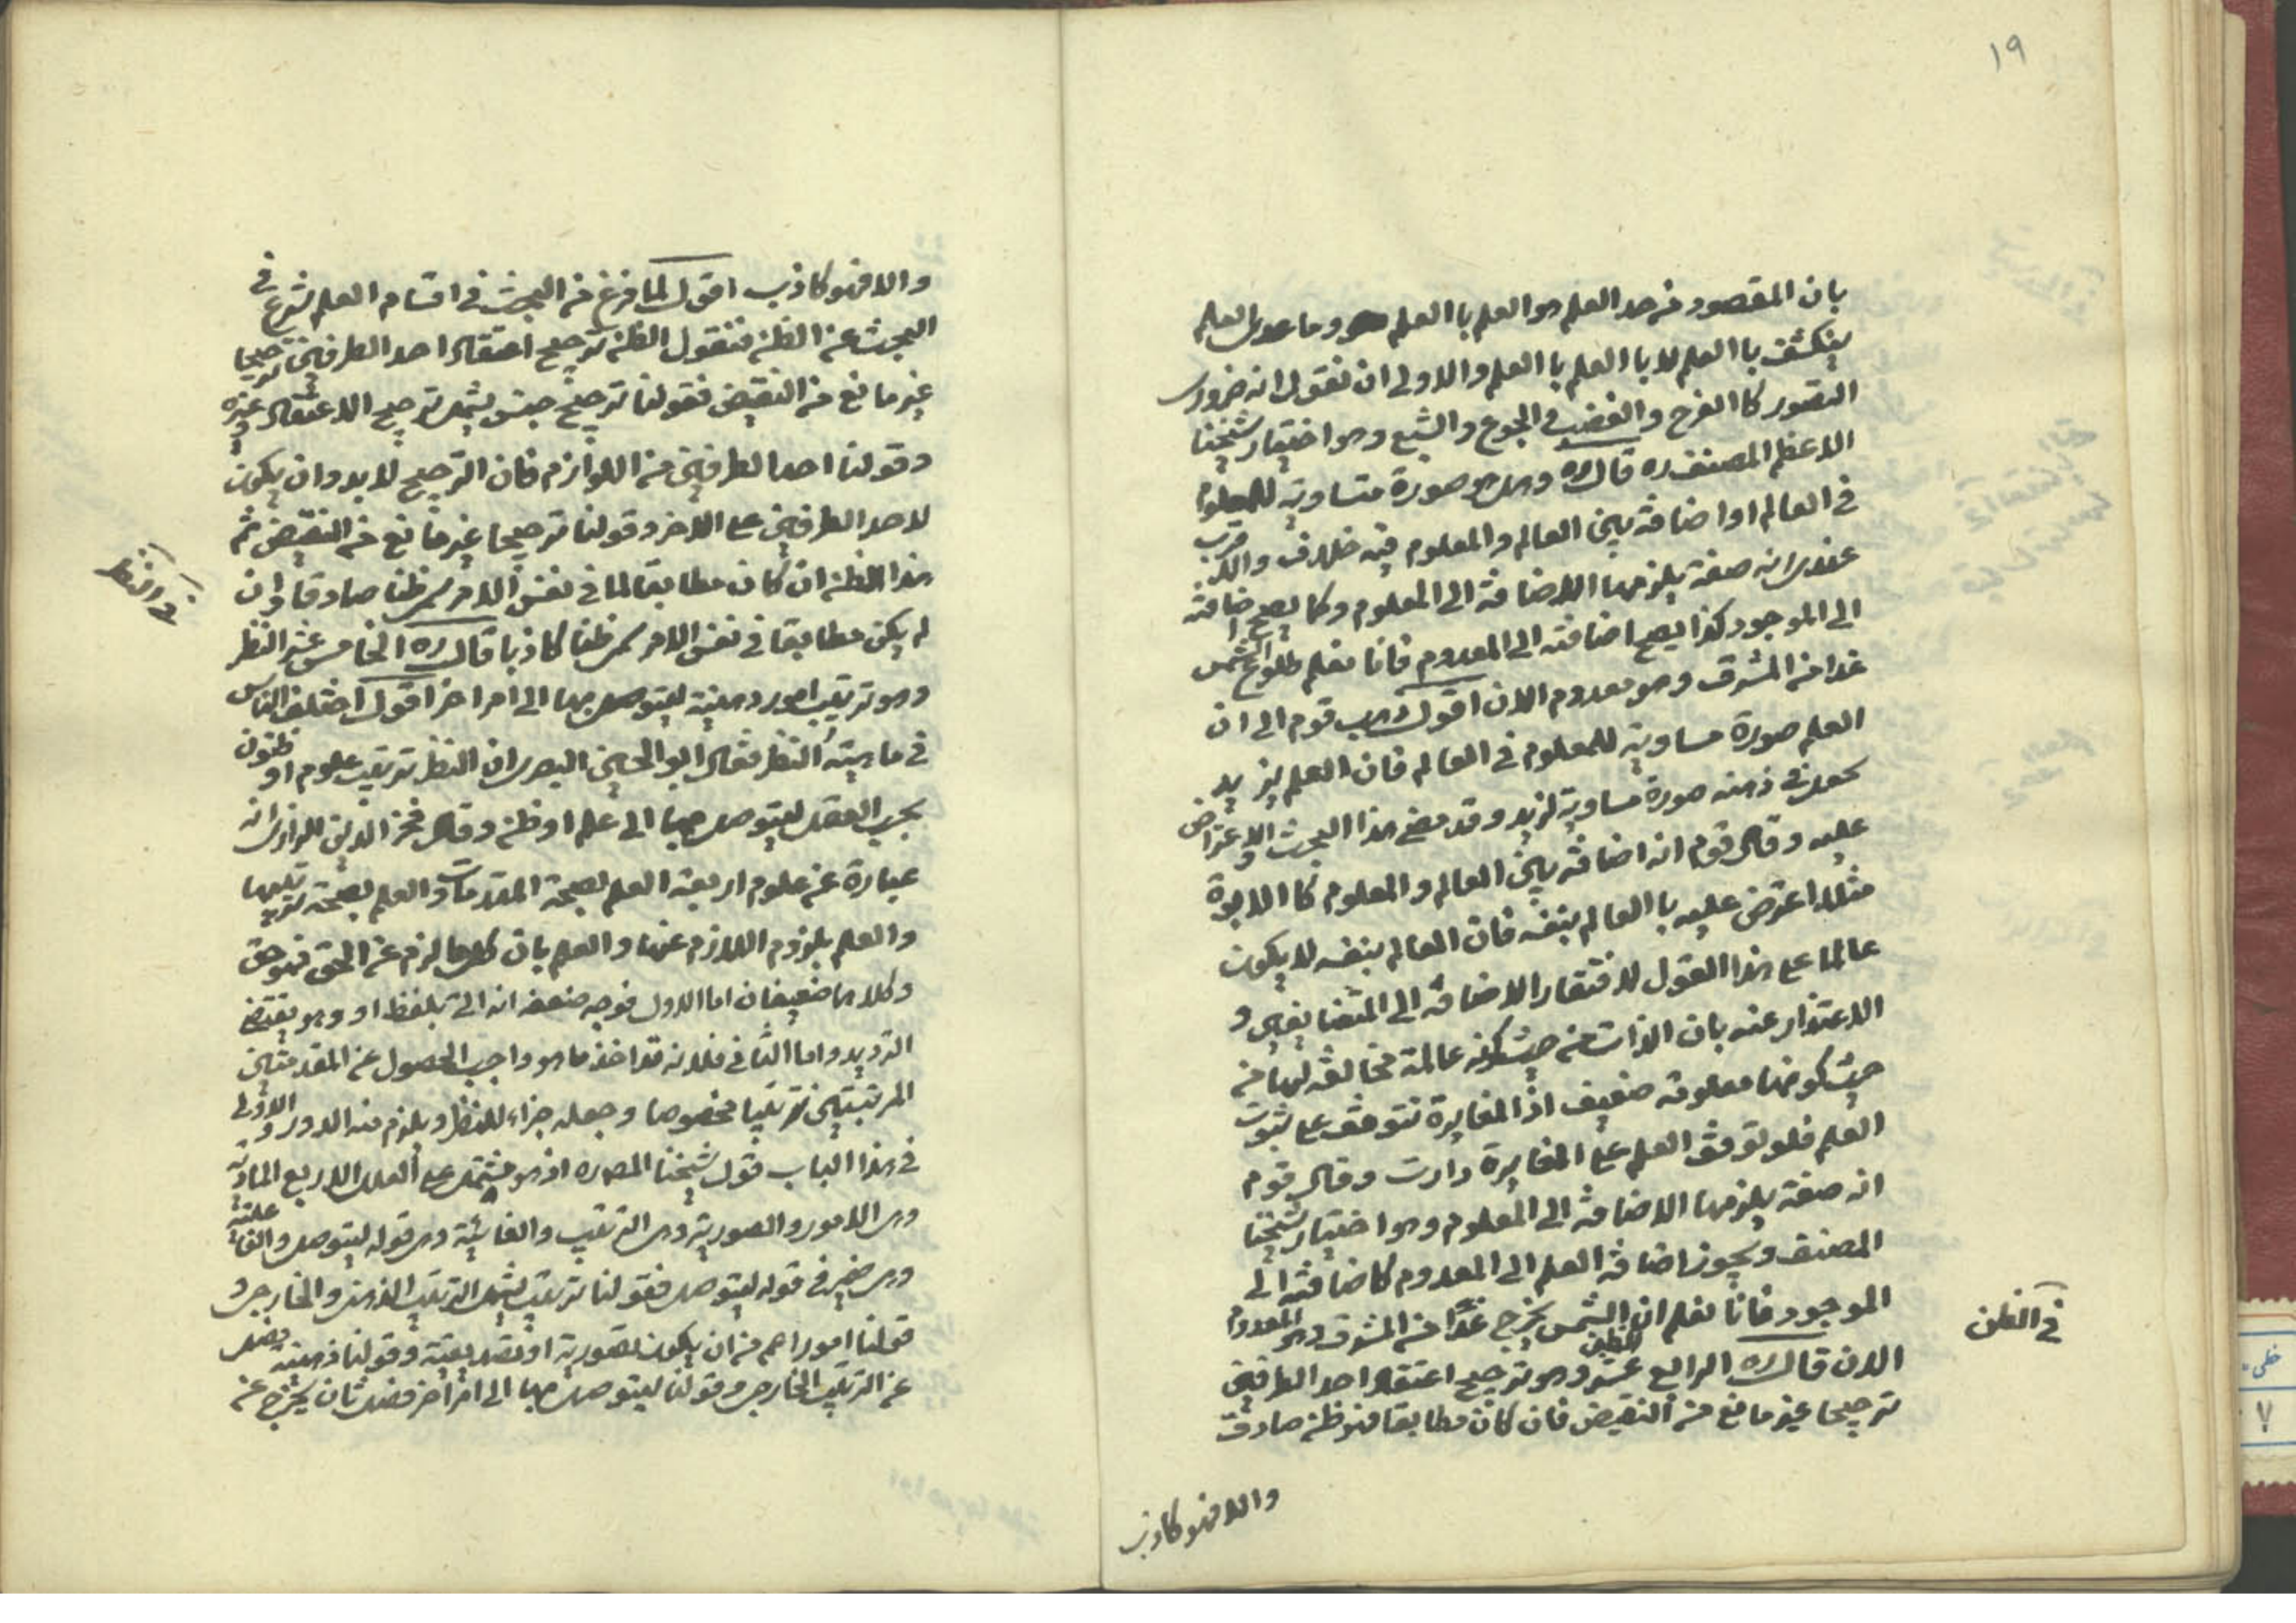 ١٩
بان المقصود من حد العلم هو العلم باالعلم وما عدى العلم
ينكشف باالعلم لا باالعلم باالعلم والاولى ان نقول انه ضرورى
التصور كاالفرح والغضب و الجوع والشبع وهو اختيار شيخنا
الاعظم المصنف ره قال ره وهل هو صورة متساوية للمعلوم
فى العالم او اضافة بين العالم والمعلوم فيه خلاف والاقرب
عندى انه صفة يلزمها الاضافة الى المعلوم وكما يصح اضافته
الى الموجود كذا يصح اضافته الى المعدوم فانا نعلم طلوع الشمس
غدا من المشرق وهو معدوم الان اقول ذهب قوم الى ان
العلم صورة مساوية للمعلوم فى العالم فان العلم بزيد
يحصل فى ذهنه صورة مساوية لزيد وقد مضى هذا البحث والاعتراض
عليه وقال قوم انه اضافة بين العالم والمعلوم كاالابوة
مثلا اعترض عليه باالعالم بنفسه فان العالم بنفسه لا يكون
عالما على هذا القول لافتقار الاضافة الى المتضايفين و
الاعتذار عنه بان الذات من حيث كونه عالمة مخالفة لها من
حيث كونها معلومة ضعيف اذ المغايرة تتوقف على ثبوت
العلم فلو توقف العلم على المغايرة دارت وقال قوم
انه صفة يلزمها الاضافة الى المعلوم وهو اختيار شيخنا
المصنف ويجوز اضافة العلم الى المعدوم كاضافته الى
الموجود فانا نعلم ان الشمس يخرج غدا من المشرق وهو المعدوم
الان قال ره الرابع عشر الظن وهو ترجيح اعتقاد احد الطرفين
ترجيحا غير مانع من النقيض فان كان مطابقا فهو ظن صادق
فى الظن
والا فهو كاذب
والا فهو كاذب اقول لما فرغ من البحث فى اقسام العلم شرع فى
البحث عن الظن فنقول الظن ترجيح اعتقاد احد الطرفين ترجيحا
غير مانع من النقيض فقولنا ترجيح جنس يشمل ترجيح الاعتقاد وغيره
وقولنا احد الطرفين من اللوازم فان الترجيح لا بد وان يكون
لاحد الطرفين على الاخر وقولنا ترجيحا غير مانع من النقيض ثم
هذا الظن ان كان مطابقا لما فى نفس الامر سمى ظنا صادقا وان
لم يكن مطابقا فى نفس الامر سمى ظنا كاذبا قال ره الخامس عشر النظر
وهو ترتيب امور ذهنية ليتوصل بها الى امر اخر اقول اختلف الناس
فى ماهية النظر فقال ابو الحسين البصرى ان النظر ترتيب علوم او ظنون
بحسب العقل ليتوصل بها الى علم او ظن وقال فخر الدين الرازى انه
عبارة عن علوم اربعة العلم بصحة المقدمات والعلم بصحة ترتيبها
والعلم بلزوم اللازم عنها والعلم بان كلما لزم عن الحق فهو حق
وكلاهما ضعيفان اما الاول فوجه ضعفه انه اتى بلفظ او وهو يقتضى
الترديد واما الثانى فلانه قد اخذ ما هو واجب الحصول عن المقدمتين
المرتبتين ترتيبا مخصوصا وجعله جزاء للنظر ويلزم منه الدور والاولى
فى هذا الباب قول شيخنا المص ره اذ هو مشتمل على العلل الاربع المادية
وهى الامور والصورية وهى الترتيب والغائية وهى قوله ليتوصل والفاعلية
وهى ضمير فى قوله ليتوصل فقولنا ترتيب يشمل الترتيب الذهنى والخارجى و
قولنا امور اعم من ان يكون تصورية او تصديقية وقولنا ذهنية فصل
عن الترتيب الخارجى وقولنا ليتوصل بها الى امر اخر فصل ثان يخرج عن
فى النظر